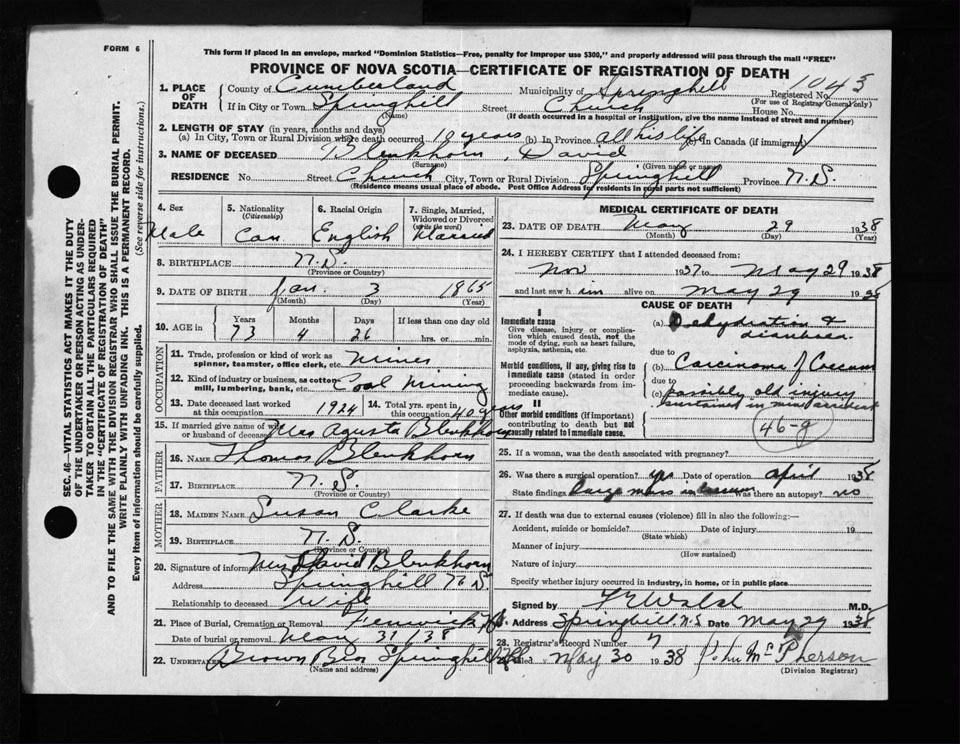 FORM 6
This form if placed in an envelope, marked "Dominion Statistics—Free, penalty for improper use $300," and properly addressed will pass through the mail "FREE"
PROVINCE OF NOVA SCOTIA—CERTIFICATE OF REGISTRATION OF DEATH
SEC. 46—VITAL STATISTICS ACT MAKES IT THE DUTY
OF THE UNDERTAKER OR PERSON ACTING AS UNDER-
TAKER TO OBTAIN ALL THE PARTICULARS REQUIRED
IN THE "CERTIFICATE OF REGISTRATION OF DEATH"
AND TO FILE THE SAME WITH THE DIVISION REGISTRAR WHO SHALL ISSUE THE BURIAL PERMIT.
WRITE PLAINLY WITH UNFADING INK. THIS IS A PERMANENT RECORD.
Every item of information should be carefully supplied. (See reverse side for instructions.)
1. PLACE OF DEATH County of Cumberland Municipality of Springhill Registered No. 1043
(For use of Registrar General only)
If in City or Town Springhill Street Church House No.
(Name) (If death occurred in a hospital or institution, give the name instead of street and number)
2. LENGTH OF STAY (in years, months and days)
(a) In City, Town or Rural Division where death occurred 18 years (b) In Province all his life (c) In Canada (if immigrant)
3. NAME OF DECEASED Blenkhorn, David
(Surname) (Given name or names)
RESIDENCE No. Street Church City, Town or Rural Division Springhill Province N.S.
(Residence means usual place of abode. Post Office Address for residents in rural parts not sufficient)
4. Sex Male
5. Nationality (Citizenship) Can
6. Racial Origin English
7. Single, Married, Widowed or Divorced (write the word) Married
8. BIRTHPLACE N.S.
(Province or Country)
9. DATE OF BIRTH Jan. 3 1865
(Month) (Day) (Year)
10. AGE in Years Months Days If less than one day old
73 4 26 hrs. or min.
OCCUPATION
11. Trade, profession or kind of work as spinner, teamster, office clerk, etc. Miner
12. Kind of industry or business, as cotton mill, lumbering, bank, etc. Coal Mining
13. Date deceased last worked at this occupation 1924
14. Total yrs. spent in this occupation 40 years
15. If married give name of wife or husband of deceased Mrs Agusta Blenkhorn
FATHER
16. NAME Thomas Blenkhorn
17. BIRTHPLACE N.S.
(Province or Country)
MOTHER
18. MAIDEN NAME Susan Clarke
19. BIRTHPLACE N.S.
(Province or Country)
20. Signature of informant Mrs David Blenkhorn
Address Springhill N.S.
Relationship to deceased Wife
21. Place of Burial, Cremation or Removal Fenwick N.S.
Date of burial or removal May 31/38
22. UNDERTAKER Brown Bros Springhill
(Name and address)
MEDICAL CERTIFICATE OF DEATH
23. DATE OF DEATH May 29 1938
(Month) (Day) (Year)
24. I HEREBY CERTIFY that I attended deceased from:
Nov 1937 to May 29 1938
and last saw him alive on May 29 1938
CAUSE OF DEATH
I
Immediate cause
Give disease, injury or complication which caused death, not the mode of dying, such as heart failure, asphyxia, asthenia, etc.
(a) Dehydration & diarrhoea
due to
Morbid conditions, if any, giving rise to immediate cause (stated in order proceeding backwards from immediate cause).
(b) Carcinoma of Caecum
due to
(c) possibly old injury
sustained in mine accident
II
Other morbid conditions (if important) contributing to death but not causally related to immediate cause.
46-g
25. If a woman, was the death associated with pregnancy?
26. Was there a surgical operation? yes Date of operation April 1938
State findings Large mass in caecum Was there an autopsy? no
27. If death was due to external causes (violence) fill in also the following:—
Accident, suicide or homicide? Date of injury 19
(State which)
Manner of injury
(How sustained)
Nature of injury
Specify whether injury occurred in industry, in home, or in public place
Signed by M.D.
Address Springhill, N.S. Date May 29 1938
28. Registrar's Record Number 7
Filed May 30 1938 John McPherson
(Division Registrar)